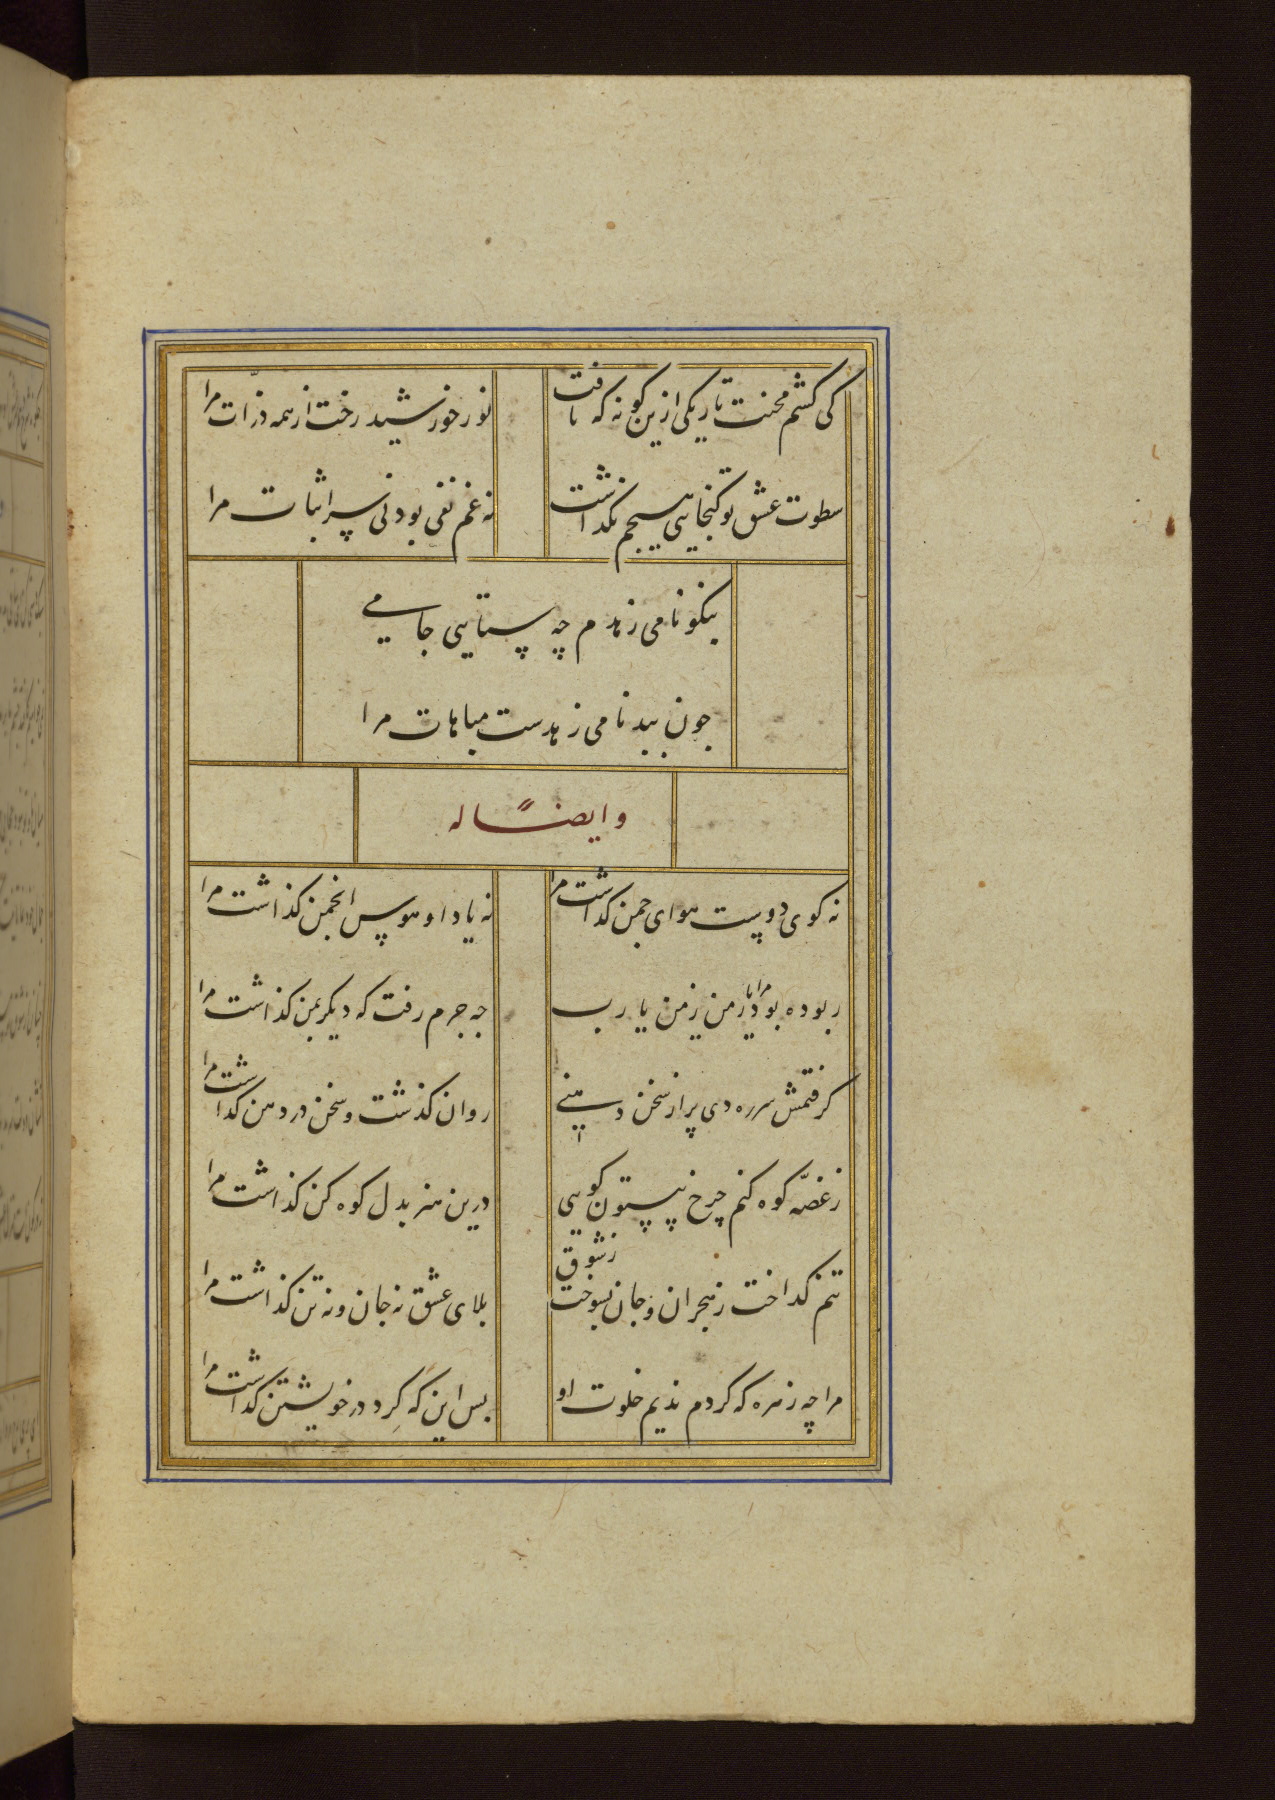 کی کشم محنت تاریکی ازین کونه که تافت
نور خورشید رخت از همه ذرّات مرا
سطوت عشق تو کنجایی هیچم نکذاشت
نه غم نفی بود نی سر اثبات مرا
بنکونامی زهدم چه ستایی جامی
چون ببدنامی زهدست مباهات مرا
وایضاً له
نه کوی دوست هوای چمن کذاشت مرا
نه یاد او هوس انجمن کذاشت مرا
ربوده بود مرا یار من زمن یا رب
چه جرم رفت که دیکر بمن کذاشت مرا
کرفتمش سر ره دی پر از سخن
روان کذشت و سخن در دهن کذاشت مرا
ز غصّه کوه کنم چرخ بیستون کویی
درین هنر بدل کوه کن کذاشت مرا
تنم کداخت ز هجران و جان بسوخت ز شوق
بلای عشق نه جان و نه تن کذاشت مرا
مرا چه زهره که کردم ندیم خلوت او
بس این که کرد در خویشتن کذاشت مرا